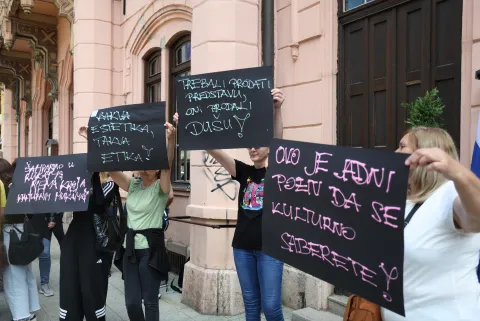 NEMA KRAJA
KAKVA
ESTETIKA,
TAKVA
ETIKA!
TREBALI PRODATI
PREDSTAVU,
ONI PRODALI
DUŠU!
OVO JE JADNI
POZIV DA SE
KULTURNO
SABERETE!